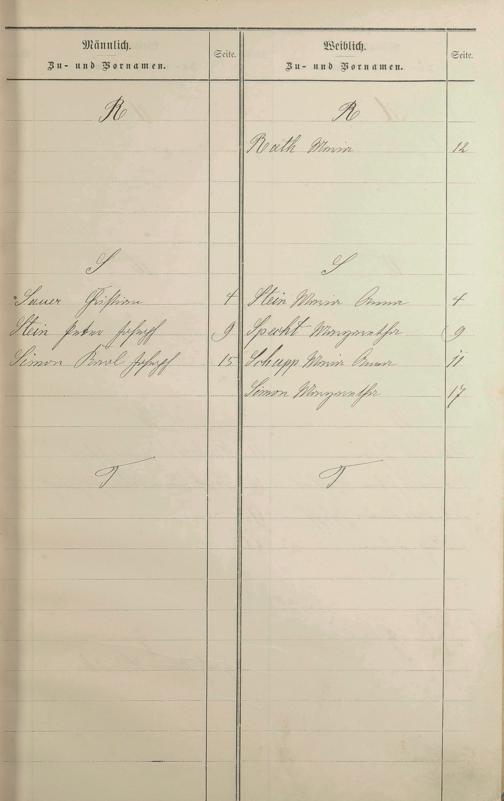 Männlich.
Zu- und Vornamen.
Seite.
R
S
Sauer Christian 4
Stein Peter Joseph 9
Simon Karl Joseph 15
T
Weiblich.
Zu- und Vornamen.
Seite.
R
Rath Maria 12
S
Stein Maria Anna 4
Specht Margaretha 9
Schupp Maria Anna 11
Simon Margaretha 17
T